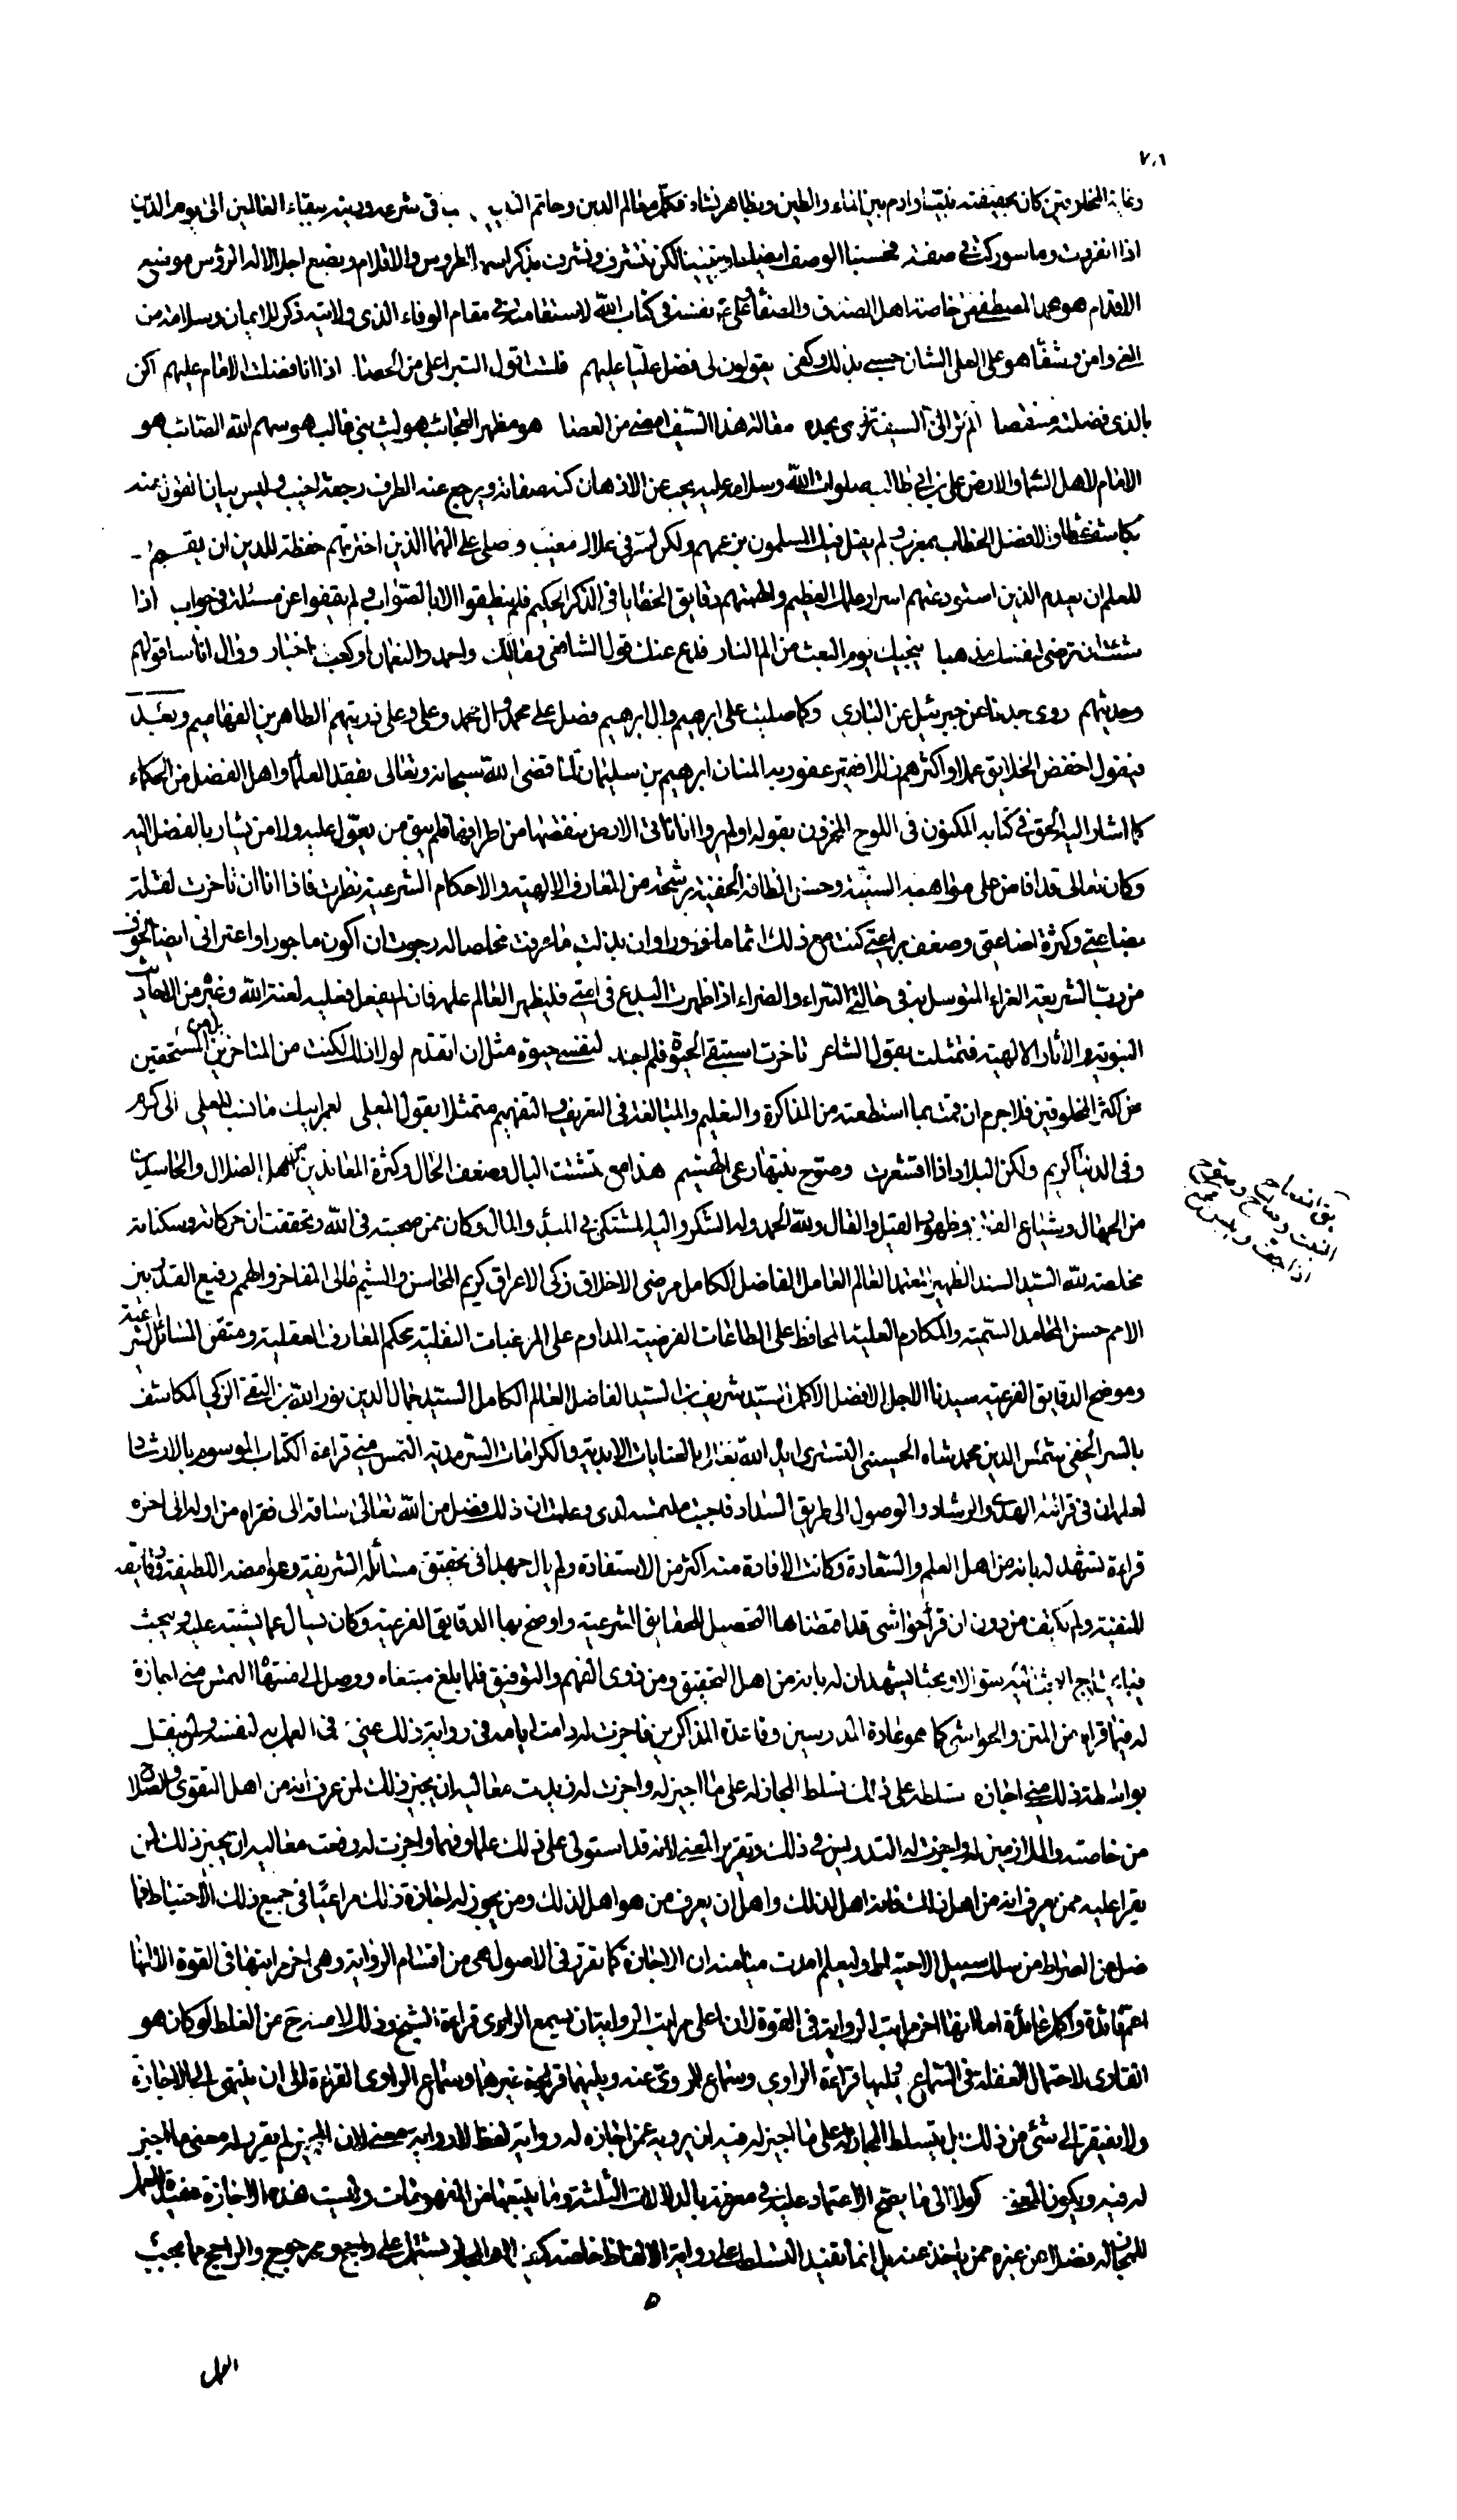 ٧٠١
المخلوقين كان بحقيقته نبيا وادم بين الماء والطين وبظاهر معالم الدين وخاتم شرعه ودينه ببقاء العالمين الى يوم الدين
اذا انفردت وما سوركت في صفة فحسبنا الوصف لكن نتشرف ونشرف بذكر اسمه الطروس والاقلام ونضع اجلالا له الرؤس موضع
الاقدام هو محمد المصطفى من خاصة اهل الصدق والصفا وعلى نفسه في كتاب الله لاستقامته في مقام الوفاء الذي ولايته ذكر للايمان وسلامة من
الغي وامن وشفا هو علي العلي الشان حسبي بذلك وكفى يقولون لي فضل عليا عليهم فلست اقول التبر اعلى من الحصا اذا انا فضلت الامام عليهم اكن
بالذي فضلته متنقصا الم تر ان السيف يزري بحده مقالة هذا السيف امضى من العصا هو مظهر العجائب هو ليث بني غالب هو سهم الله الصائب هو
الامام لاهل السماء والارض علي بن ابي طالب صلوات الله وسلامه عليه يحجب عن الاذهان كنه صفاته ويرجع عنه الطرف رجعة اخيب وليس بيان القول عنه
بكاشف غطاء ولا فضل الخطاب بمعرب ولم يغل فيك المسلمون بزعمهم ولكن لسر في علاك مغيب وصلى على الهما الذين اخترتهم حفظة للدين ان يقسم
للعلم ان يعدم الذين استودعتهم اسرار علمك العظيم والهمتهم دقايق الخفايا في الذكر الحكيم فلم ينطقوا الا بالصواب ولم يقفوا عن مسئلة في جواب اذا
شئت ان ترضى لنفسك مذهبا ينجيك يوم البعث من الم النار فدع عنك قول الشافعي ومالك واحمد والنعمان او كعب احبار ووال اناسا قولهم
وحديثهم روى جدنا عن جبرئيل عن الباري وكما صليت على ابرهيم وال ابرهيم فصل على محمد وال محمد وعلي وعلى ذريتهم الطاهرين وبعد
فيقول اخفض الخلايق عملا واكثرهم زللا الفقير عفو ربه المنان ابرهيم بن سليمان لما قضى الله سبحانه وتعالى بفقد العلماء واهل الفضل من الحكماء
كما اشار اليه الحق في كتابه المكنون في اللوح المخزون بقوله اولم يروا انا ناتي الارض ننقصها من اطرافها فلم يبق من يعول عليه ولا من يشار بالفضل اليه
وكان تعالى قد افاض علي من مواهبه السنية وحسن الطافه الخفية برشحة من المعارف الالهية والاحكام الشرعية نظرت فاذا انا ان تاخرت لقلة
بضاعتي وكثرة اضاعتي وضعف براعتي كنت مع ذلك اثما مازورا وان بذلت ما عرفت مخلصا له رجوت ان اكون ماجورا واعتراني ايضا الخوف
من رب الشريعة الغراء المتوسل به في حالة السراء والضراء اذا ظهرت البدع في امتي فليظهر العالم علمه فان لم يفعل فعليه لعنة الله وغيره من الاحاديث
النبوية والاثار الالهية فتمثلت بقول الشاعر تاخرت استبقي الحيوة فلم اجد لنفسي حيوة مثل ان اتقدم لولا ذلك لكنت من المتاخرين بل من المستحقين
عن اكثر المخلوقين فلا جرم ان قمت بما استطعته من المذاكرة والتعليم والمبالغة في التعريف والتفهيم متمثلا بقول المعلى لعمر ابيك ما نسب المعلى الى كرم
وفي الدنيا كريم ولكن البلاد اذا اقشعرت وصوح نبتها رعي الهشيم هذا مع تشتت البال وضعف الحال وكثرة المعاندين من اهل الضلال والحاسدين
من الجهال وشياع الفتن وظهور القيل والقال ولله الحمد وله الشكر واليه المشتكى في المبدء والمال وكان ممن صحبته في الله وتحققت ان حركاته وسكناته
مخلصة لله السيد السند الظهير المعتمد العالم العامل الفاضل الكامل مرضي الاخلاق زكي الاعراق كريم المحاسن والشيم عالي المفاخر والهمم رفيع القدر بين
الامم حسن المحامد السمية والمكارم العلية المحافظ على الطاعات الفرضية المداوم على المرغبات النفلية محكم المعارف العقلية ومتقن المسائل الشرعية
وموضح الدقايق الفرعية سيدنا الاجل الافضل الاكمل السيد شريف بن السيد الفاضل العالم الكامل السيد جمال الدين نور الله بن التقي الزكي المكاشف
بالسر الخفي شمس الدين محمد شاه الحسيني التستري ايده الله تعالى بالعنايات الابدية والكرامات السرمدية التمس مني قراءة الكتاب الموسوم بالارشاد
لعلمه ان في قرائته الهدى والرشاد والوصول الى طريق السداد فاجبت ملتمسه لدي وعلمت ان ذلك فضل من الله تعالى ساقه الي فقراه من اوله الى اخره
قراءة تشهد له بانه من اهل العلم والسعادة وكانت الافادة منه اكثر من الاستفادة ولم يال جهدا في تحقيق مسائله الشريفة وغوامضه اللطيفة ودقايقه
المنيفة ولم يكتف من دون ان قرأ حواشي قد امضناها لتحصيل الحقايق الشرعية واوضح بها الدقايق الفرعية وكان يسال عما يشتبه عليه ويبحث
سؤالا وبحثا يشهدان له بانه من اهل التحقيق ومن ذوي الفهم والتوفيق فلما بلغ مبتغاه ووصل الى منتهاه التمس مني اجازة
له فيما قراه من المتن والحواشي كما هو عادة المدرسين وقاعدة المذاكرين فاجزت له دامت ايامه في رواية ذلك عني في العمل به لنفسه ولمن ينقل
بواسطة ذلك مني اجازة تسلطه على ذلك تسلط المجاز له على ما اجيز له واجزت له زيدت معاليه ان يجيز ذلك لمن عرف انه من اهل التقوى والصلاح
من خاصته والملازمين له واجزت له التدريس في ذلك وتقرير المعنى لانه قد استولى على ذلك علما وفهما واجزت له رفعت معاليه ان يجيز ذلك لمن
يقرا عليه ممن يعرف انه من اهل ذلك فانه اهل لذلك واهل ان يعرف من هو اهل لذلك ومن يجوز له اجازة ذلك مراعيا في جميع ذلك الاحتياط فما
ضل عن الصراط من سلك سبيل الاحتياط وليعلم امدت ميامنه ان الاجازة كما تقرر في الاصول هي من اقسام الرواية وهي اخر مراتبها في القوة الا انها
اعم فائدة واكمل عائدة اما انها اخر مراتب الرواية في القوة لان اعلى مراتب الرواية ان يسمع الراوي قراءة الشيخ وذلك لا مندح عن الغلط لو كان هو
القاري لاحتمال الغفلة في السماع ويليها قراءة الراوي وسماع المروي عنه ويليهما قراءة غيرهما وسماع الراوي القراءة الى ان ينتهي الى الاجازة
ولا يفتقر الى شئ من ذلك بل يتسلط المجاز له على ما اجيز له فيه ان يرويه عمن اجازه له رواية لفظ لا رواية معنى لان المجيز لم يقرر له معنى ما اجيز
له فيه ويكون المعنى موكولا الى ما يصح الاعتماد عليه في معرفة بالدلالات الثلثة وما يتبعها من المفهومات وليست هذه الاجازة مفيدة للعمل
للمجاز له فضلا عن غيره ممن ياخذ عنه بل انما تفيد التسلط على رواية الالفاظ خاصة المجاز يشتمل على راجح ومرجوح والراجح مما يجب
يق انصاح
النبت وصاح وصوح
اذا جف ويبس
العمل